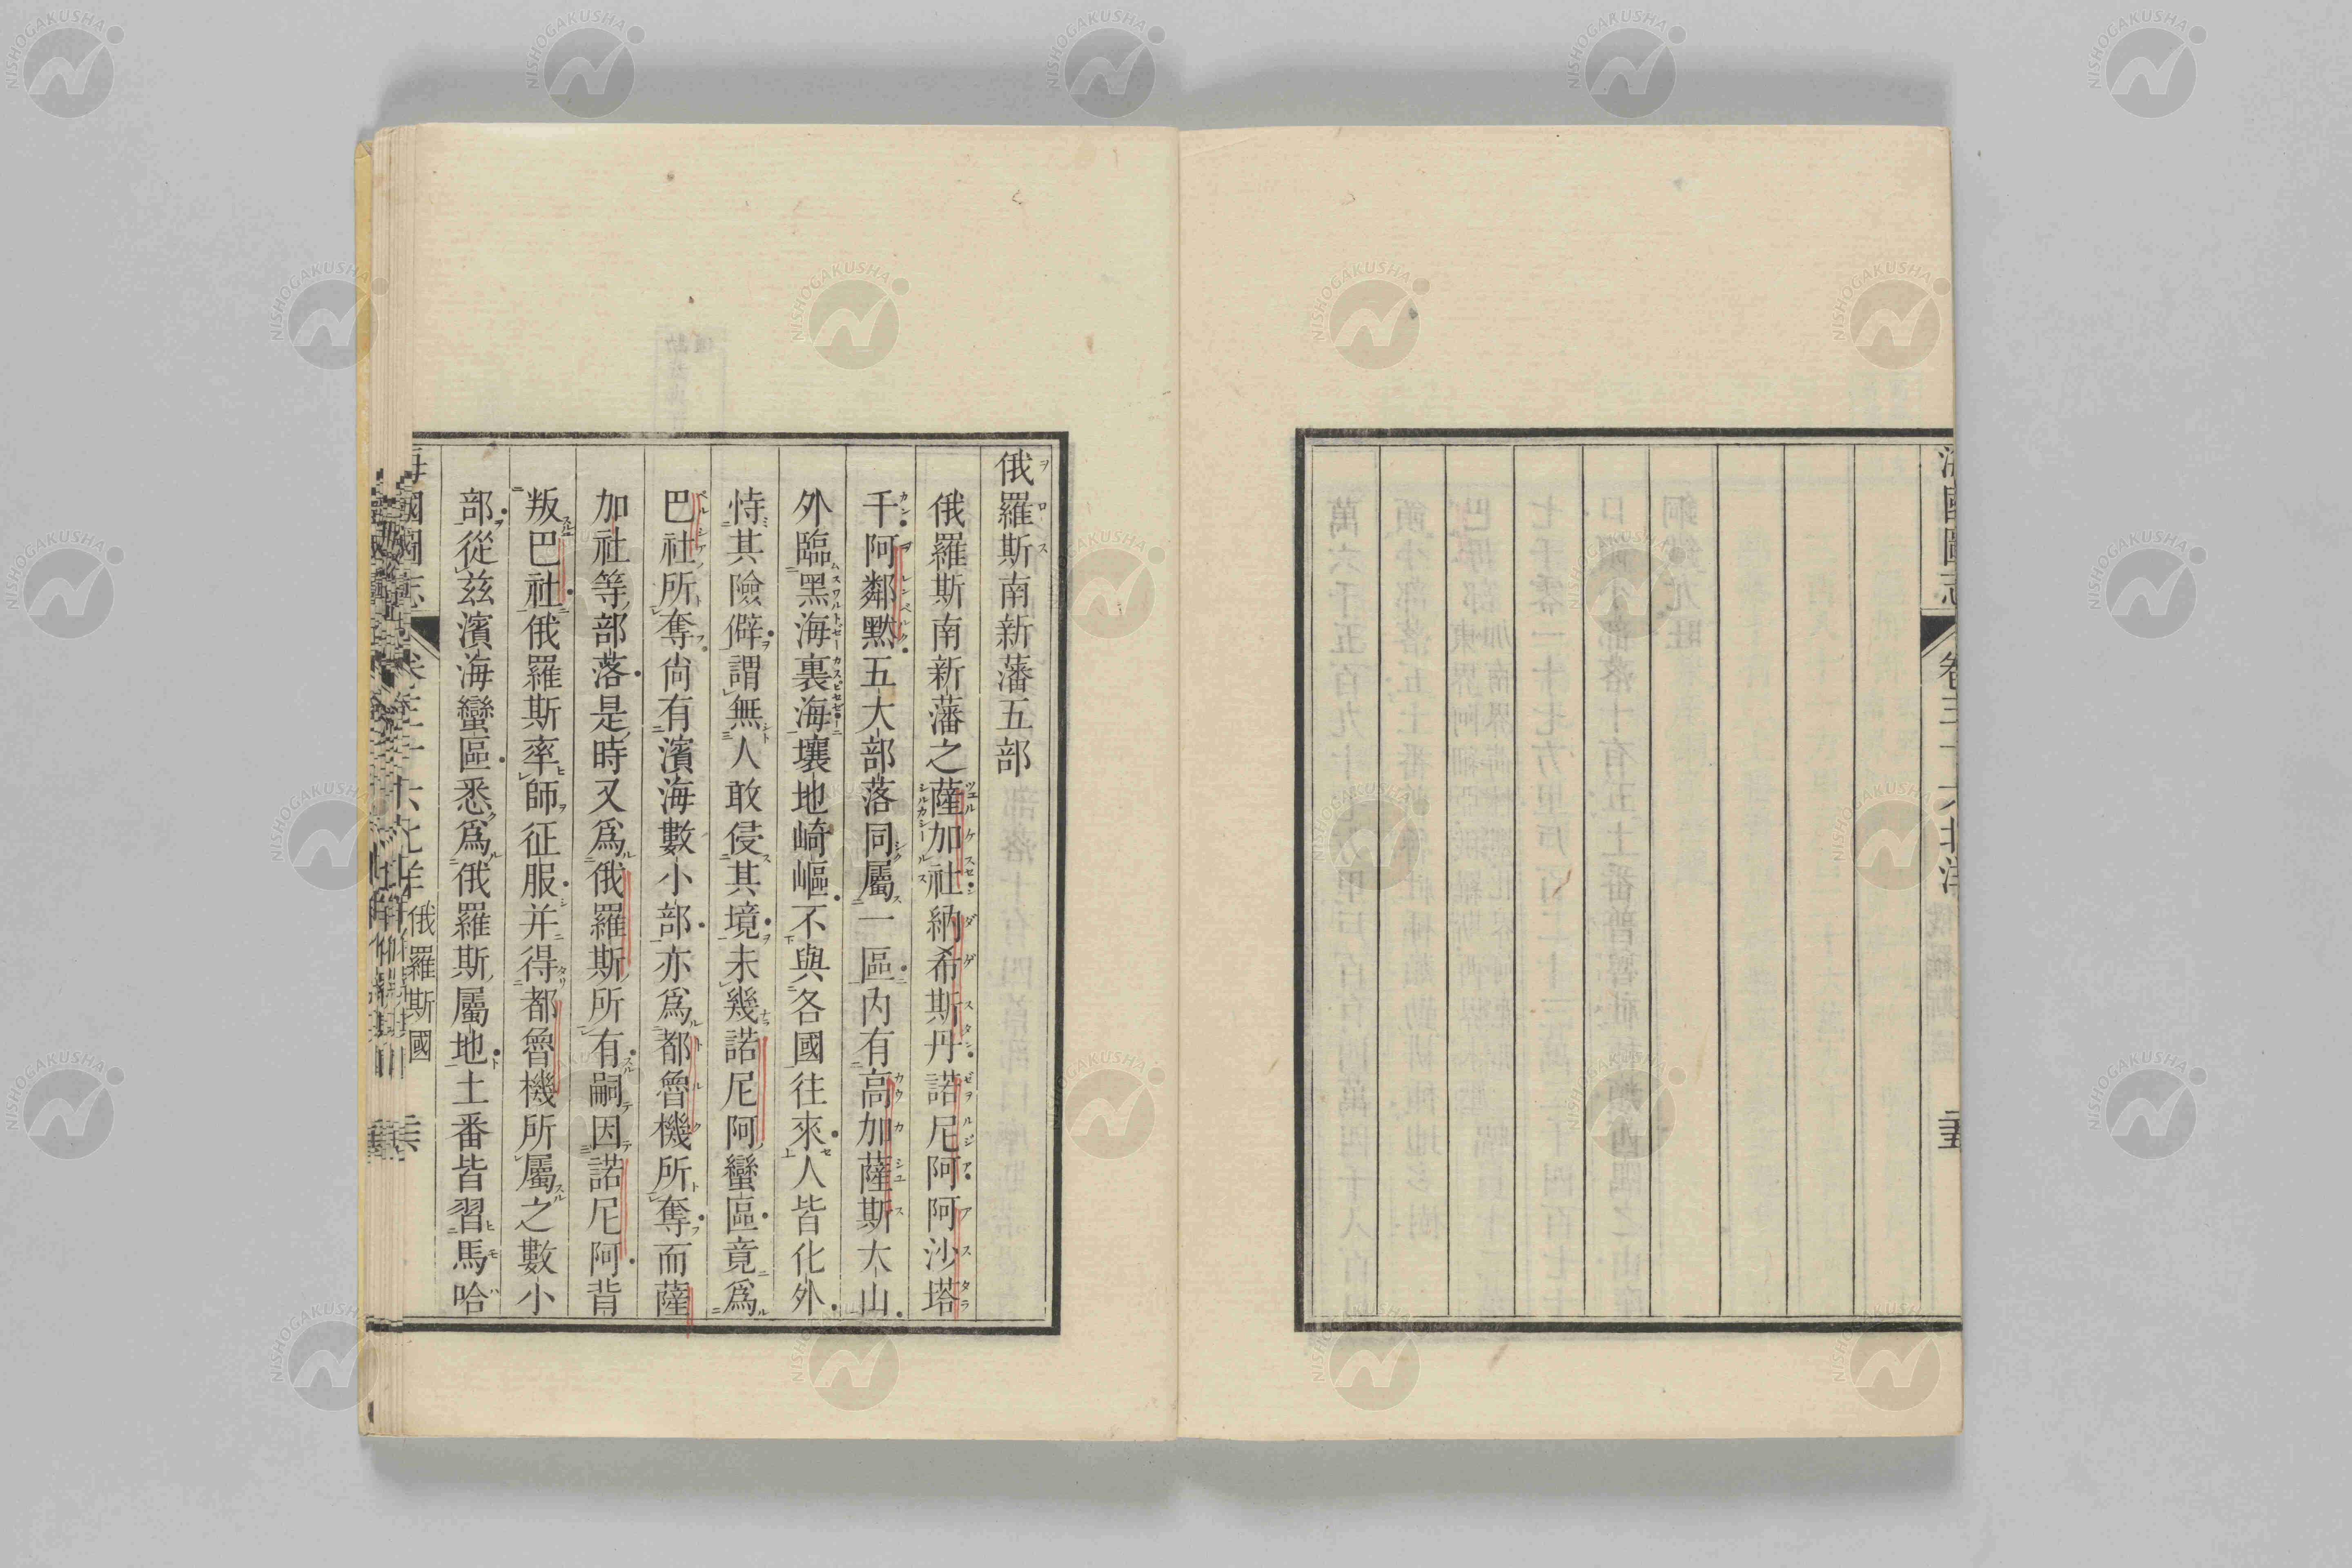 俄羅斯南新藩五部
俄羅斯南新藩之薩加社納希斯丹諾尼阿阿沙塔
千阿鄰黙五大部落同屬一區内有高加薩斯大山
外臨黑海裏海壤地崎嶇不與各國往來人皆化外
恃其險僻謂無人敢侵其境未幾諾尼阿蠻區竟爲
巴社所奪尙有濱海數小部亦爲都魯機所奪而薩
加社等部落是時又爲俄羅斯所有嗣因諾尼阿背
叛巴社俄羅斯率師征服并得都魯機所屬之數小
部從兹濱海蠻區悉爲俄羅斯屬地土番皆習馬哈
俄羅斯國
NISHOGAKUSHA